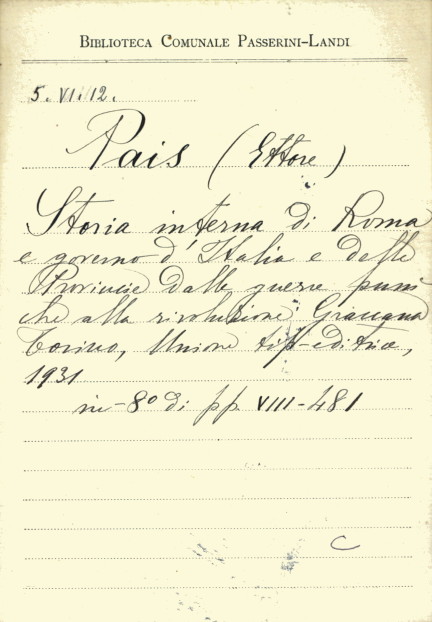 BIBLIOTECA COMUNALE PASSERINI-LANDI
5. VI. 12.
Pais (Ettore)
Storia interna di Roma
e governo d'Italia e delle
Provincie dalle guerre puni
che alla rivoluzione Graccana
Torino, Unione tip-editrice,
1931
in-8º di pp VIII-481
C